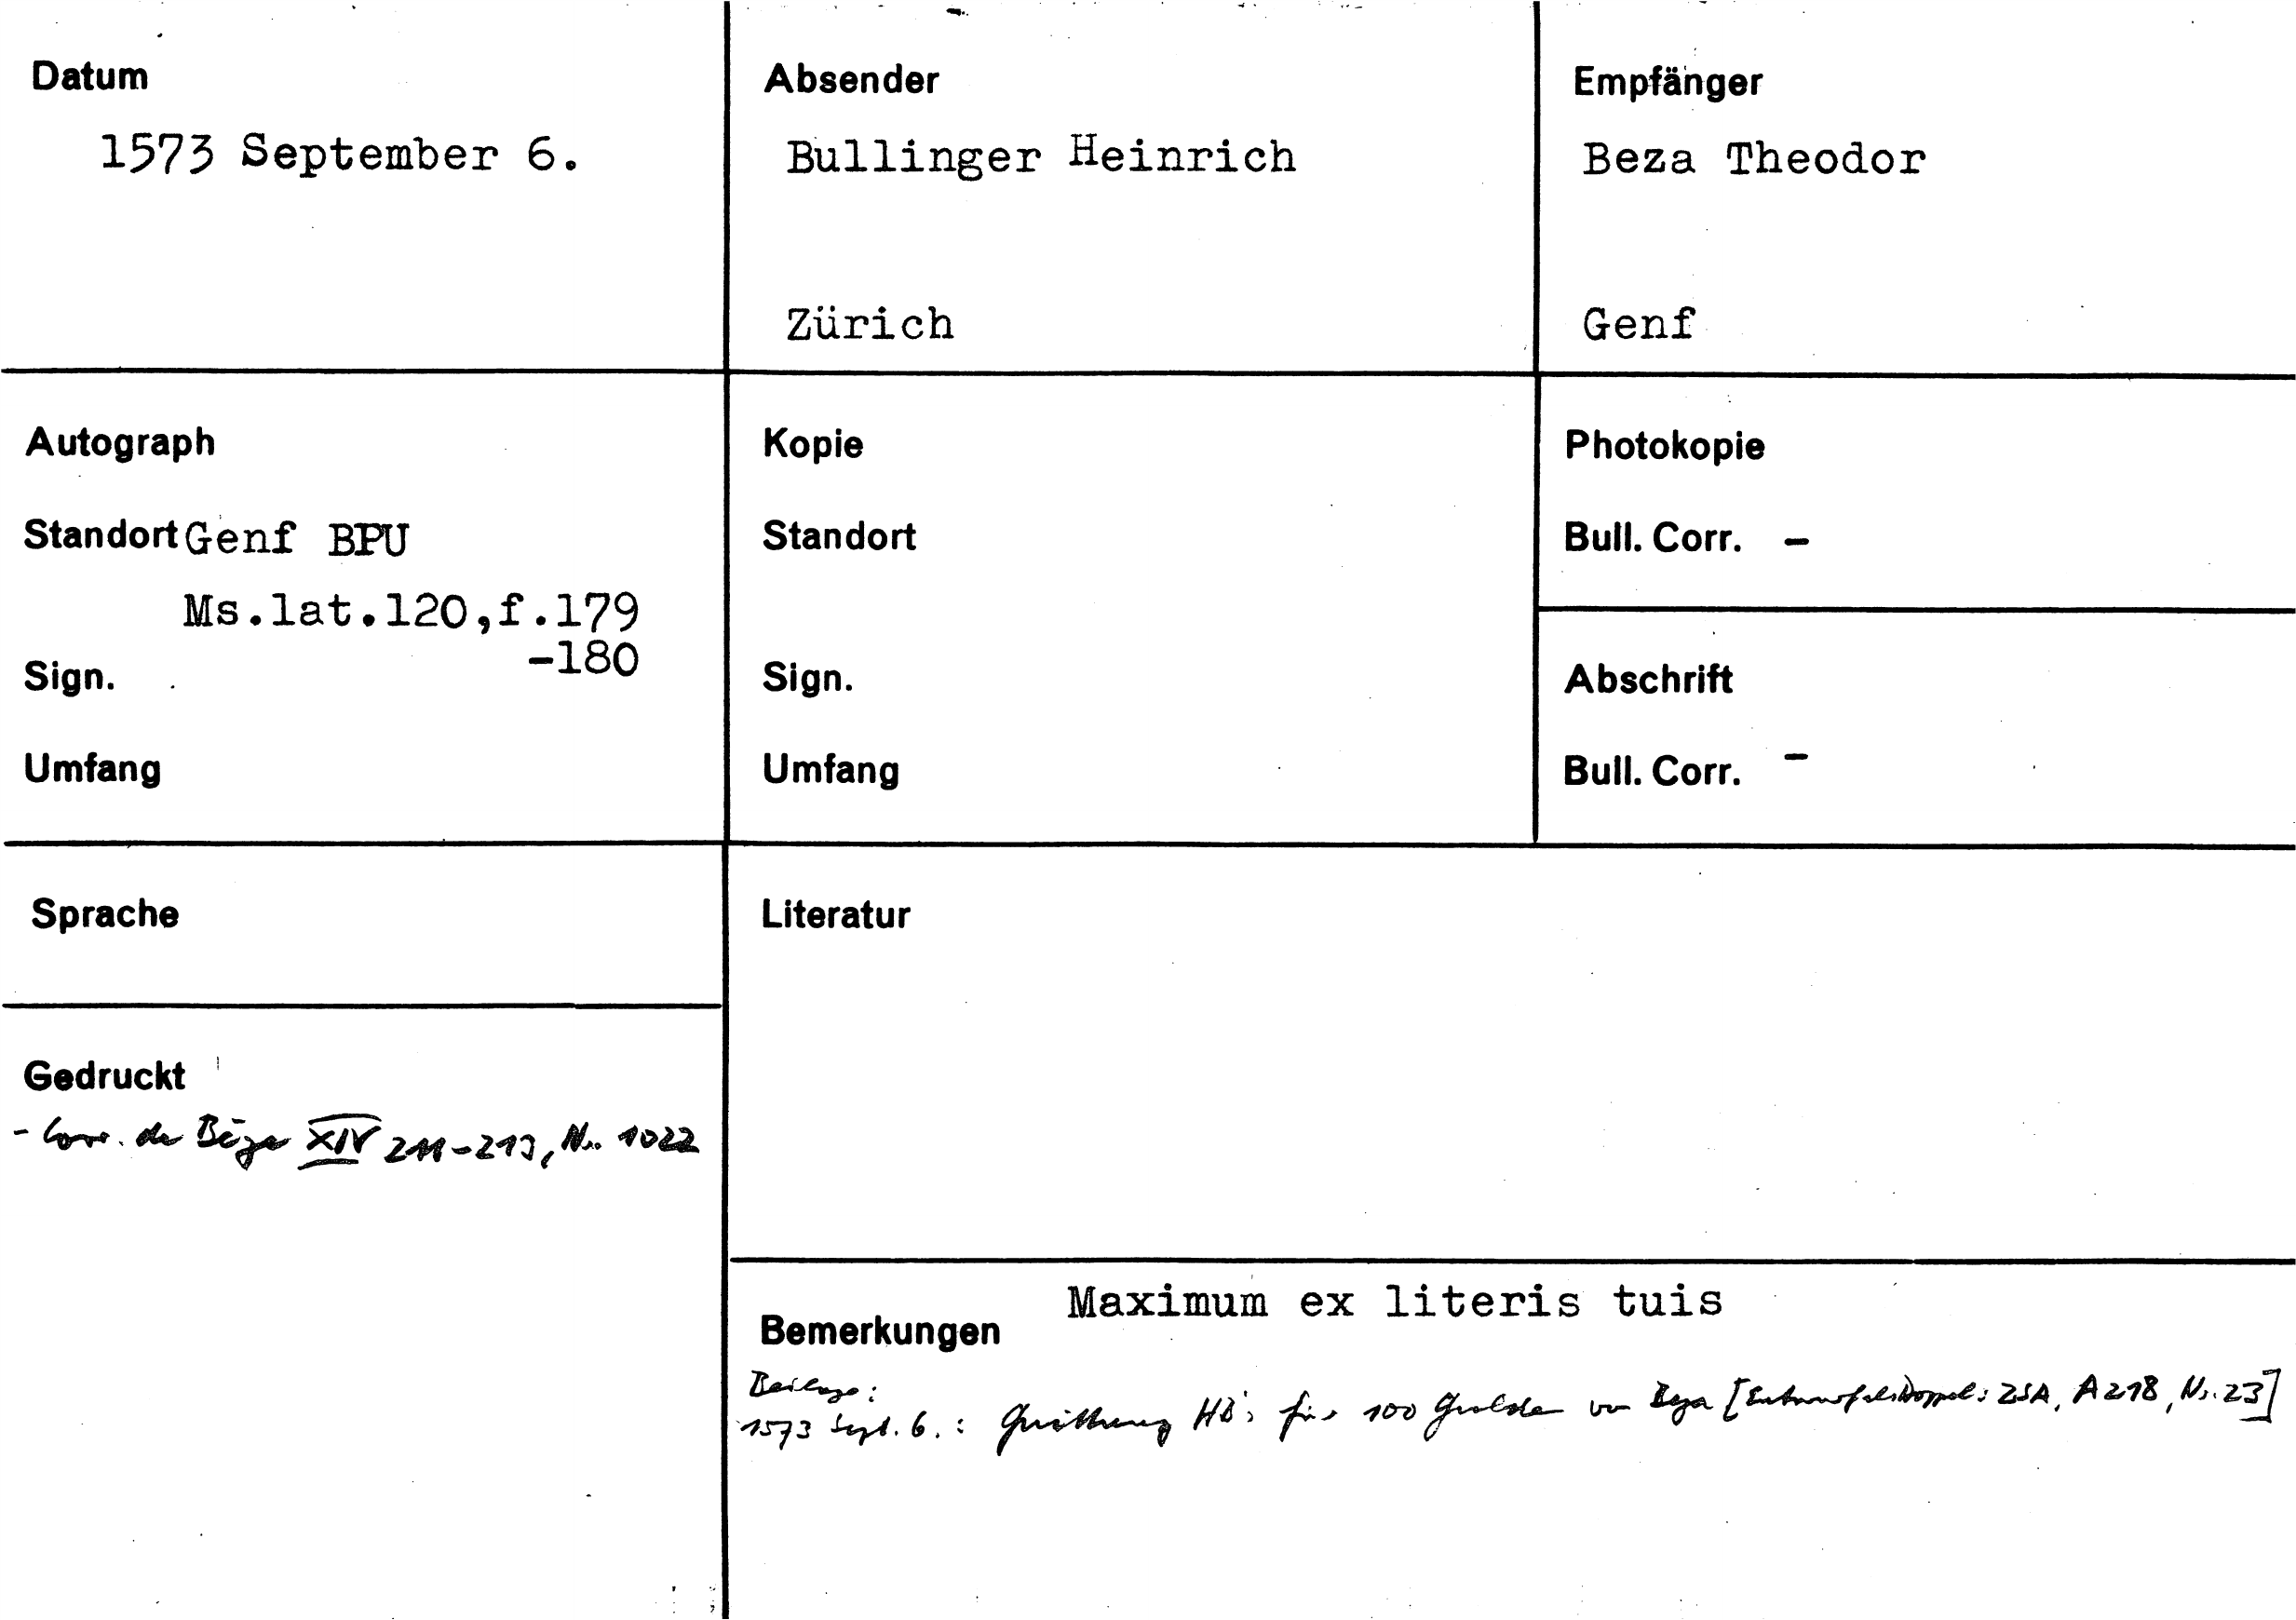 Datum
1573 September 6.
Absender
Bullinger Heinrich
Zürich
Empfänger
Beza Theodor
Genf
Autograph
Standort Genf BPU
Ms.lat.120,f.179
-180
Sign.
Umfang
Kopie
Standort
Sign.
Umfang
Photokopie
Bull. Corr. -
Abschrift
Bull. Corr. -
Sprache
Gedruckt
- Corr. de Bèze XIV 211-213, Nr. 1022
Literatur
Maximum ex literis tuis
Bemerkungen
Beilage:
1573 Sept. 6.: Quittung HB's für 100 Gulden von Beza [Entwurf als Doppel: ZSA, A 218, Nr. 23]